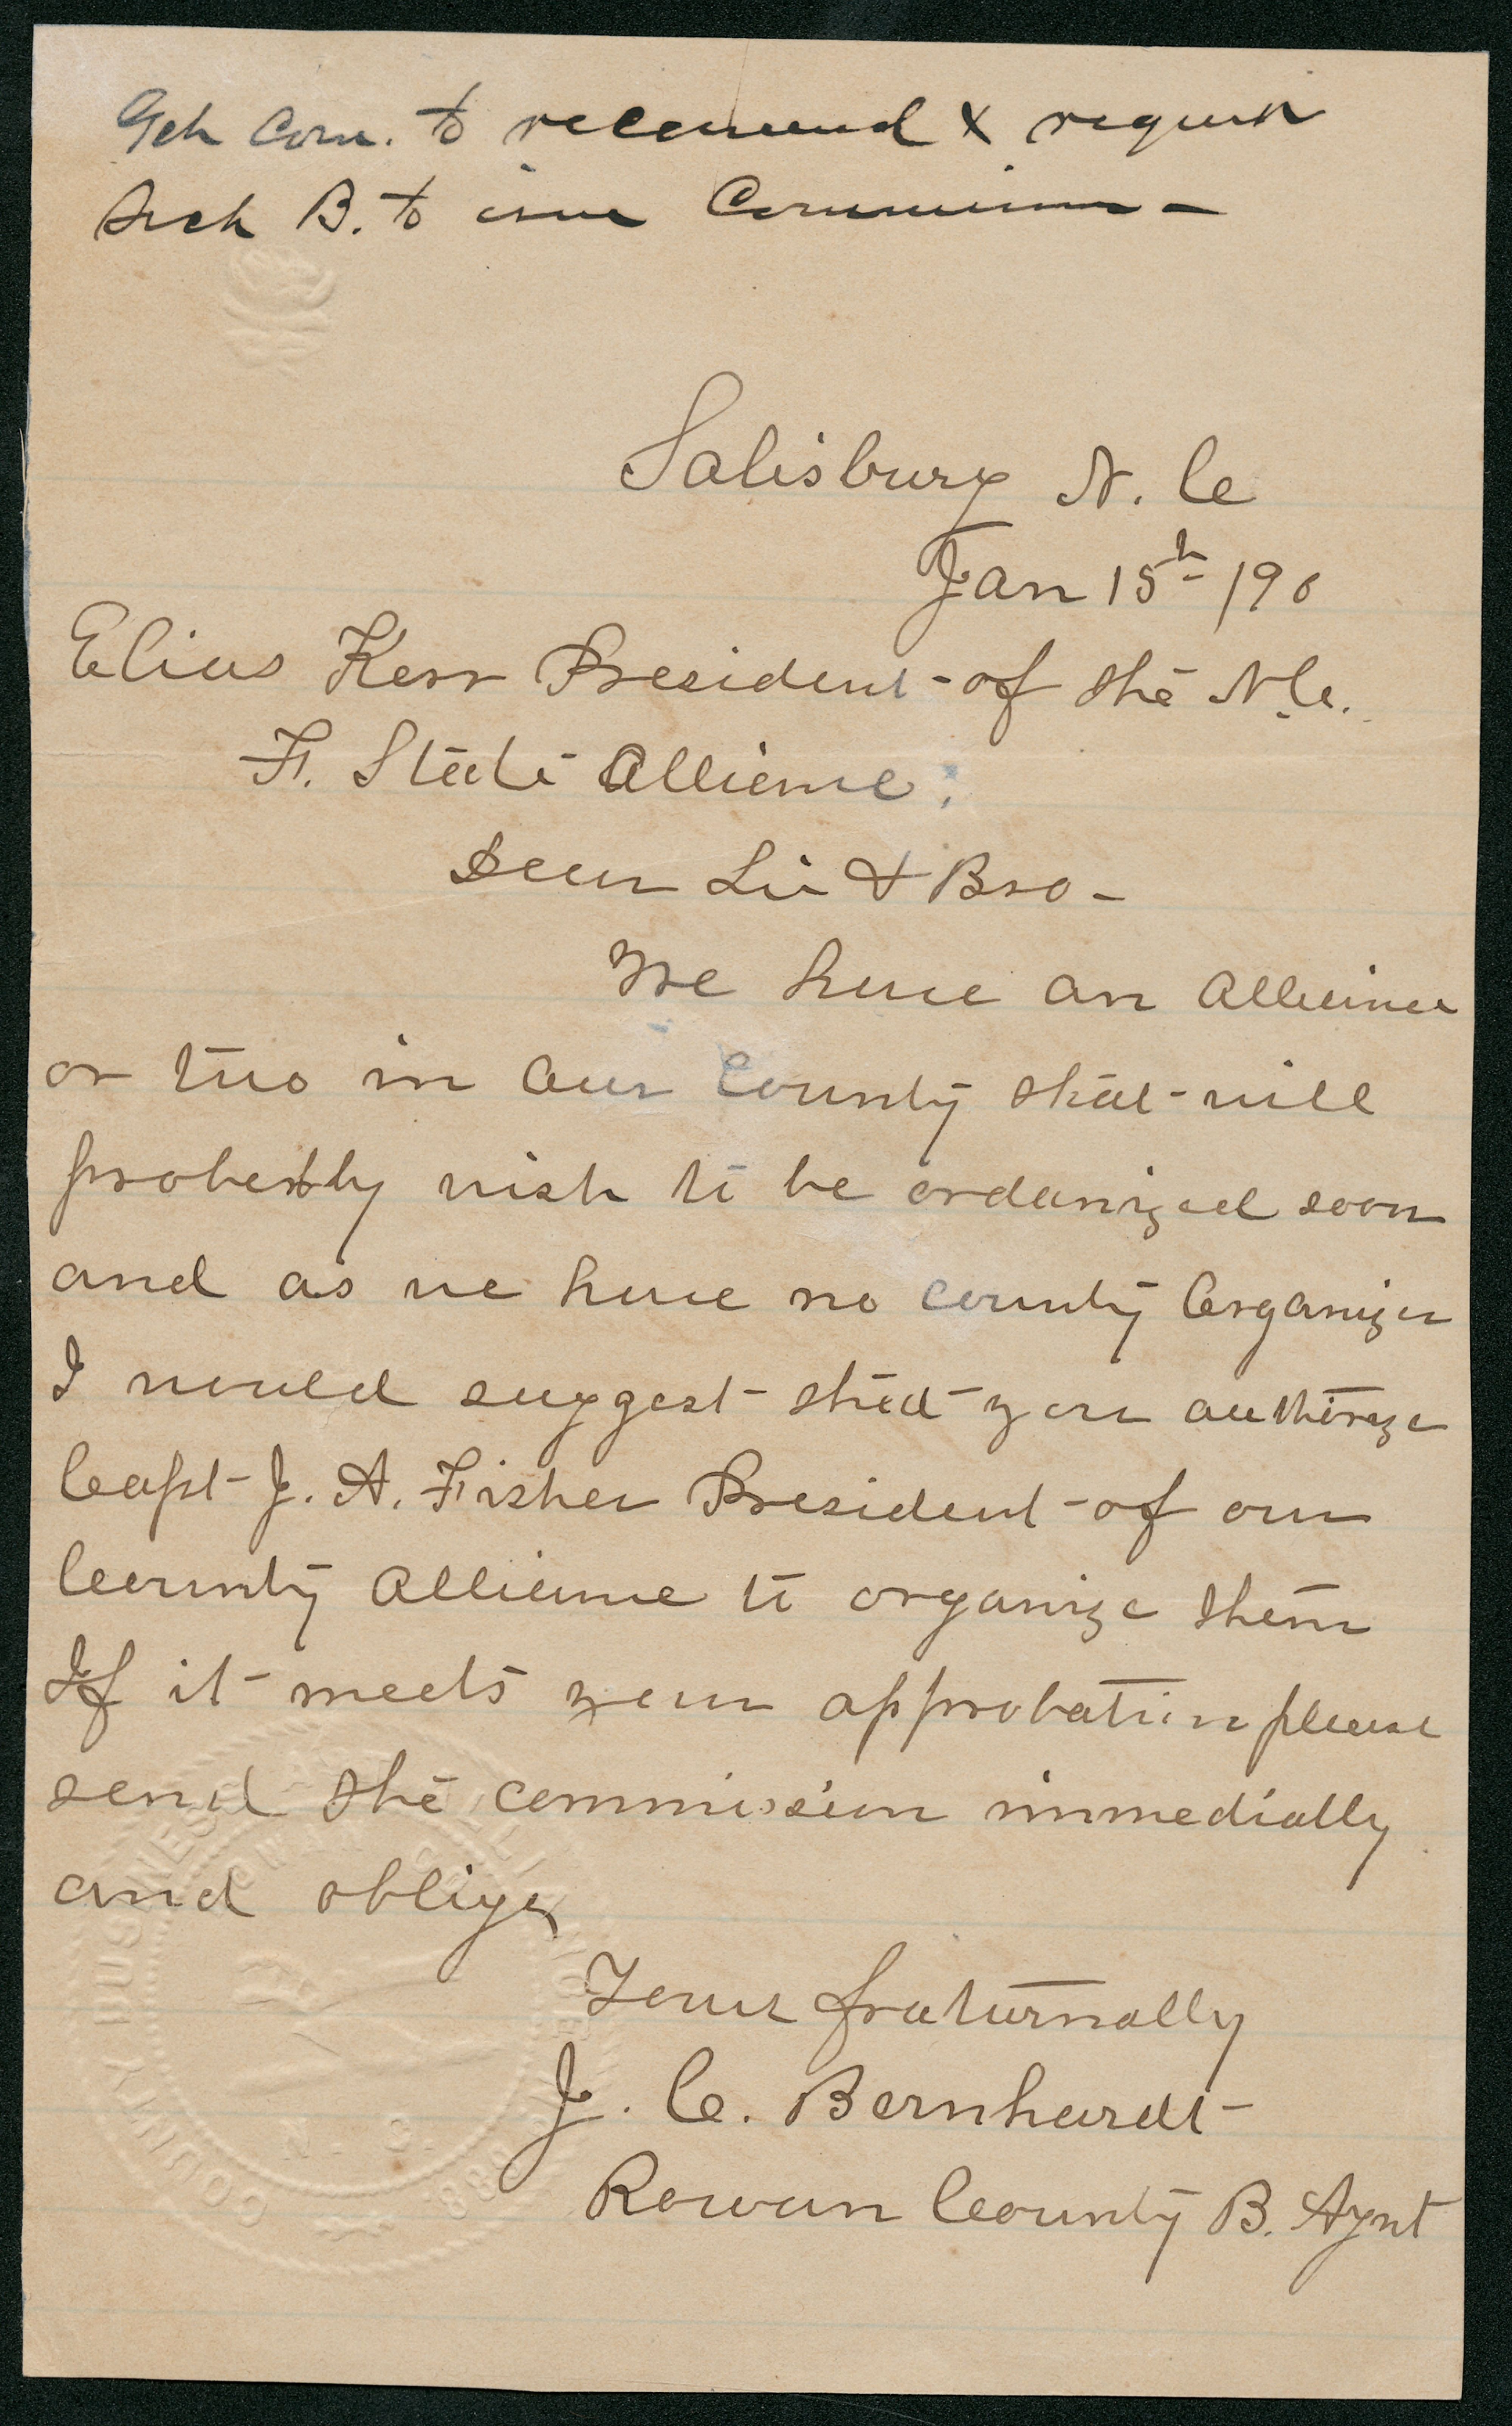 Com. to recommend & request
Sech B. to issue Commission -
Salisbury N. C
Jan 15th /90
Elias Kerr President of the N.C.
F. State Alliance:
Dear Sir & Bro -
We have an Alliance
or two in our County that will
proberbly wish to be ordanized soon
and as we have no County Organizer
I would suggest that you autherize
Capt J. A. Fisher President of our
County Alliance to organize them
If it meets your approbation please
send the commission immediatly
and oblige
Your fraturnally
J. C. Bernhardt
Rowan County B. Agnt
COUNTY BUSINESS